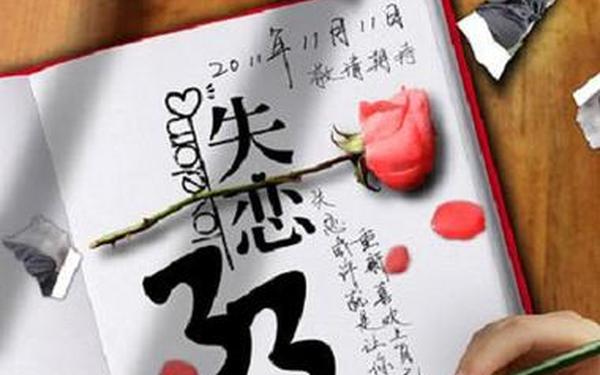 2011年11月11日
敬请期待
lovelorn
失恋
33
失恋或许就是让你
重新喜欢上自己